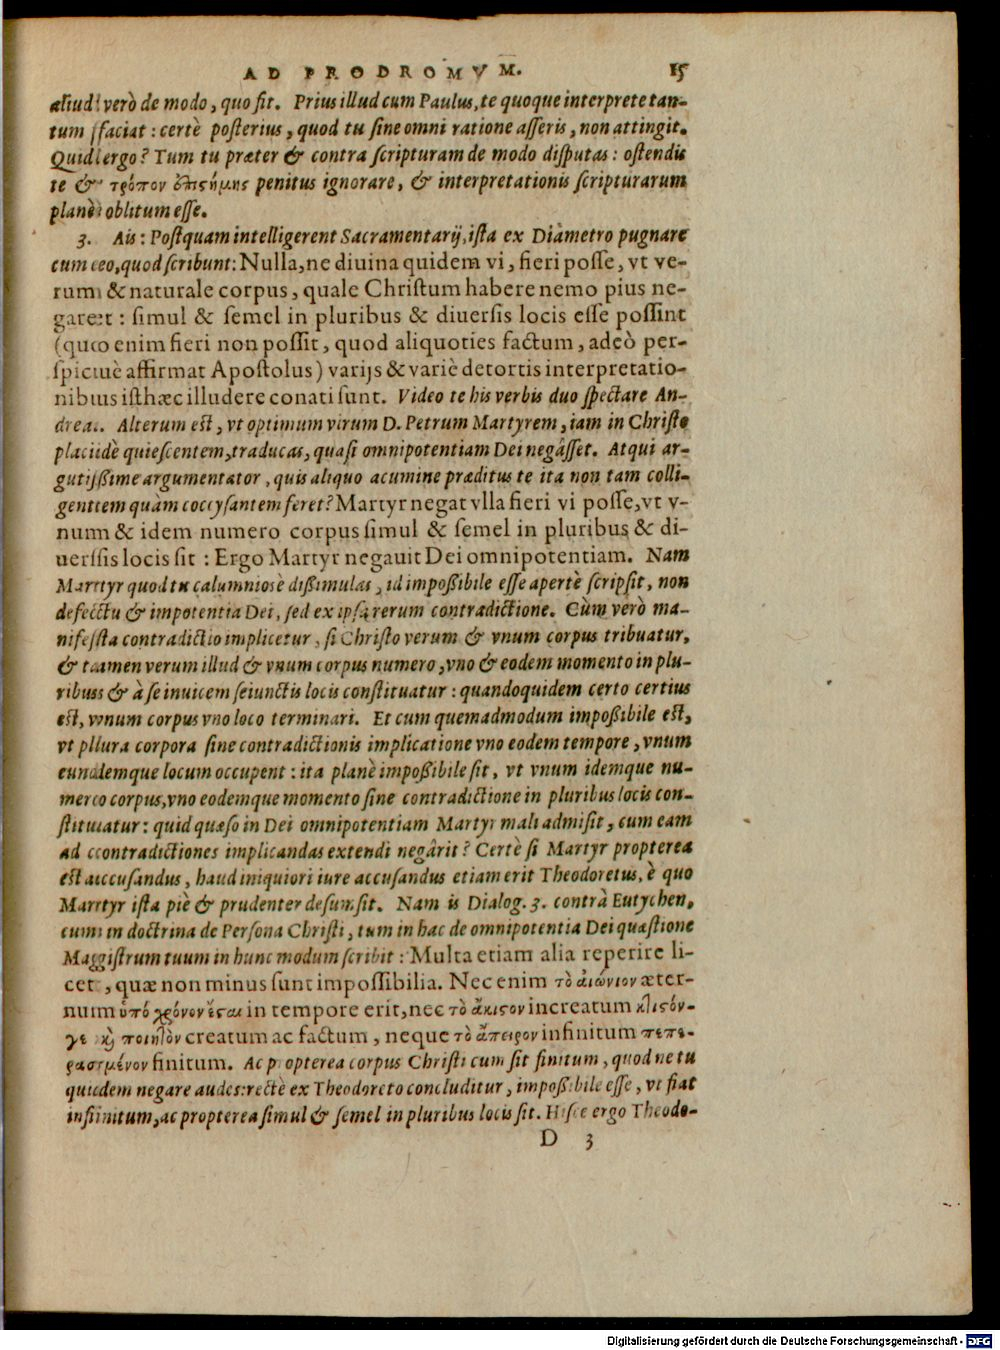 AD PRODROMVM. 15
aliud verò de modo, quo fit. Prius illud cum Paulus, te quoque interprete tan-
tum faciat: certè posterius, quod tu sine omni ratione asseris, non attingit.
Quid ergo? Tum tu præter & contra scripturam de modo disputas: ostendis
te & τρόπον ἐπιστήμης penitus ignorare, & interpretationis scripturarum
planè oblitum esse.
3. Ais: Postquam intelligerent Sacramentarij, ista ex Diametro pugnare
cum eo, quod scribunt: Nulla, ne diuina quidem vi, fieri posse, vt ve-
rum & naturale corpus, quale Christum habere nemo pius ne-
garet: simul & semel in pluribus & diuersis locis esse possint
(quo enim fieri non possit, quod aliquoties factum, adeò per-
spicuè affirmat Apostolus) varijs & variè detortis interpretatio-
nibus isthæc illudere conati sunt. Video te his verbis duo spectare An-
drea. Alterum est, vt optimum virum D. Petrum Martyrem, iam in Christo
placidè quiescentem, traducas, quasi omnipotentiam Dei negâsset. Atqui ar-
gutissime argumentator, quis aliquo acumine præditus te ita non tam colli-
gentem quàm coccysantem feret? Martyr negat vlla fieri vi posse, vt v-
num & idem numero corpus simul & semel in pluribus & di-
uersis locis sit: Ergo Martyr negauit Dei omnipotentiam. Nam
Martyr quod tu calumniosè dissimulas, id impossibile esse apertè scripsit, non
defectu & impotentia Dei, sed ex ipsa rerum contradictione. Cùm verò ma-
nifesta contradictio implicetur, si Christo verum & vnum corpus tribuatur,
& tamen verum illud & vnum corpus numero, vno & eodem momento in plu-
ribus & à se inuicem seiunctis locis constituatur: quandoquidem certo certius
est, vnum corpus vno loco terminari. Et cum quemadmodum impossibile est,
vt plura corpora sine contradictionis implicatione vno eodem tempore, vnum
eundemque locum occupent: ita planè impossibile sit, vt vnum idemque nu-
mero corpus, vno eodemque momento sine contradictione in pluribus locis con-
stituatur: quid quæso in Dei omnipotentiam Martyr mali admisit, cum eam
ad contradictiones implicandas extendi negârit? Certè si Martyr propterea
est accusandus, haud iniquiori iure accusandus etiam erit Theodoretus, è quo
Martyr ista piè & prudenter desumsit. Nam is Dialog. 3. contrà Eutychen,
cum in doctrina de Persona Christi, tum in hac de omnipotentia Dei quæstione
Magistrum tuum in hunc modum scribit: Multa etiam alia reperire li-
cet, quæ non minus sunt impossibilia. Nec enim τὸ αἰώνιον æter-
num ὑπό χρόνον ἔσται in tempore erit, nec τὸ ἄκτιστον increatum κτιστόν-
γε καὶ ποιητὸν creatum ac factum, neque τὸ ἄπειρον infinitum πεπε-
ρασμένον finitum. Ac propterea corpus Christi cum sit finitum, quod ne tu
quidem negare audes: rectè ex Theodoreto concluditur, impossibile esse, vt fiat
infinitum, ac propterea simul & semel in pluribus locis sit. Hisce ergo Theodo-
D 3
Digitalisierung gefördert durch die Deutsche Forschungsgemeinschaft - DFG